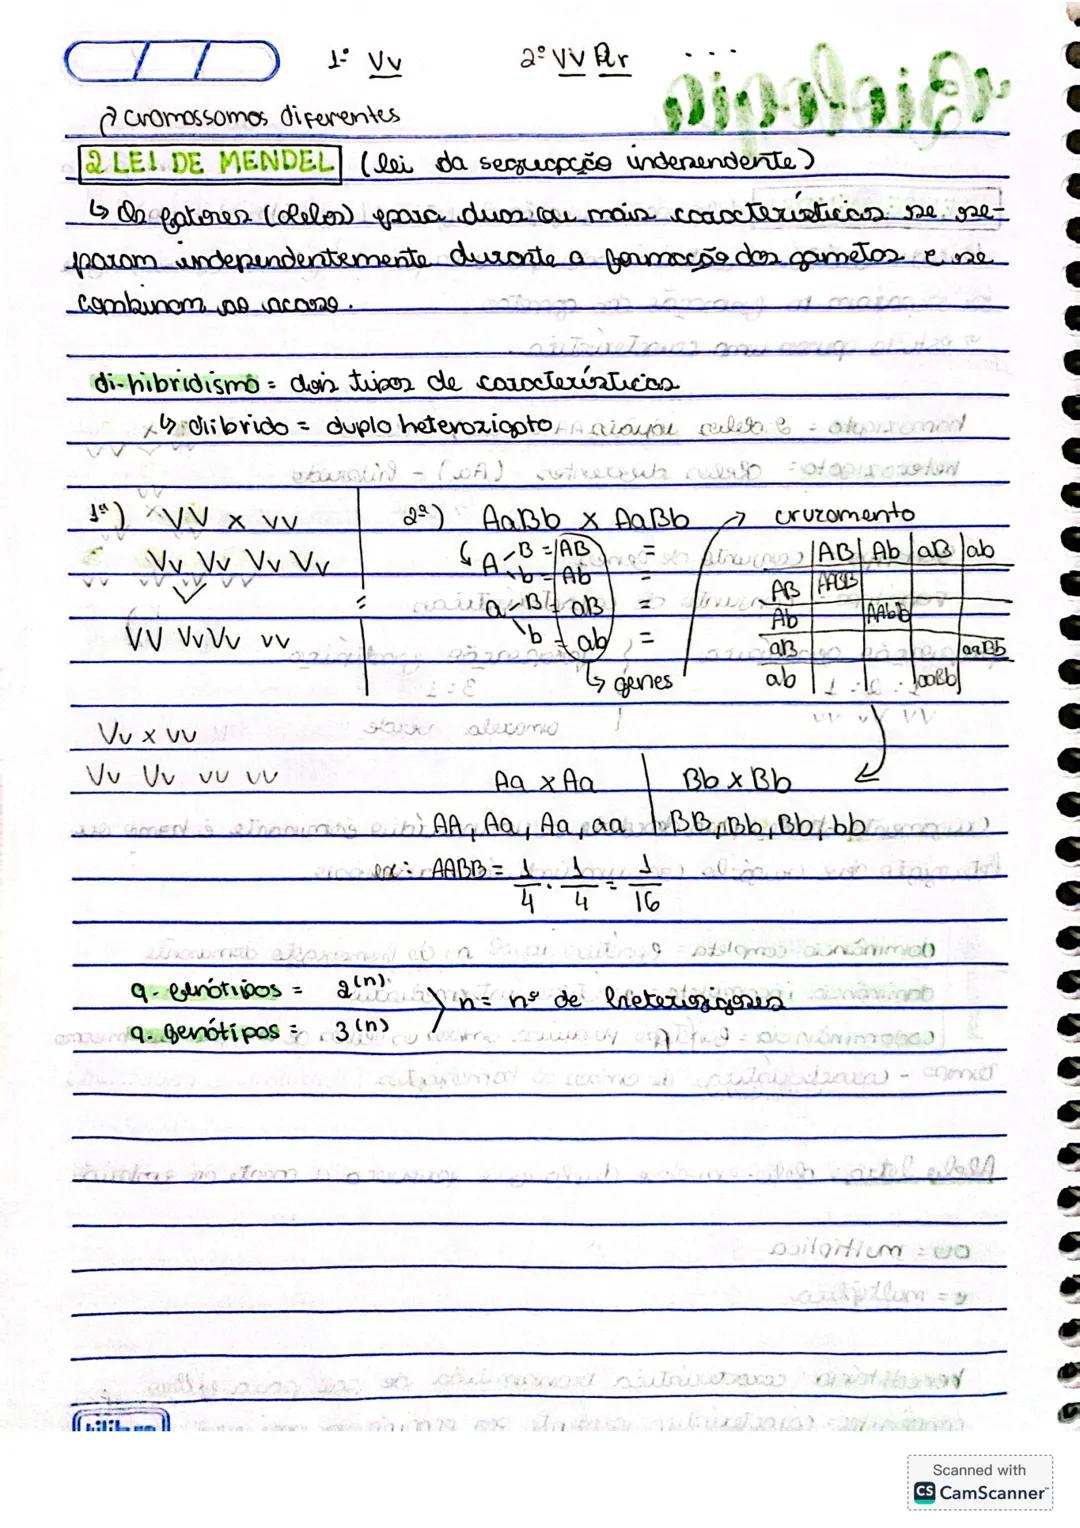 1º Vv 2º Vv Rr ...
cromossomos diferentes
2 LEI DE MENDEL (lei da segregação independente)
↳ Os fatores (alelos) para duas ou mais características se se-
param independentemente durante a formação dos gametas e se
combinam ao acaso.
di-hibridismo = dois tipos de características
↳ diíbrido = duplo heterozigoto
1ª) VV x vv 2ª) AaBb x AaBb → cruzamento
Vv Vv Vv Vv
A - B = AB =
b = Ab =
a - B = aB =
b = ab =
↳ genes
VV Vv Vv vv
AB | Ab | aB | ab
AB | AABB
Ab | AAbb
aB | aaBb
ab | aaBb
Vv x vv
Vv Vv vv vv
Aa x Aa | Bb x Bb
AA, Aa, Aa, aa | BB, Bb, Bb, bb
ex: AABB = 1/4 . 1/4 = 1/16
q. fenótipos = 2(n)
n = nº de heterozigoses
q. genótipos = 3(n)
Scanned with
CS CamScanner